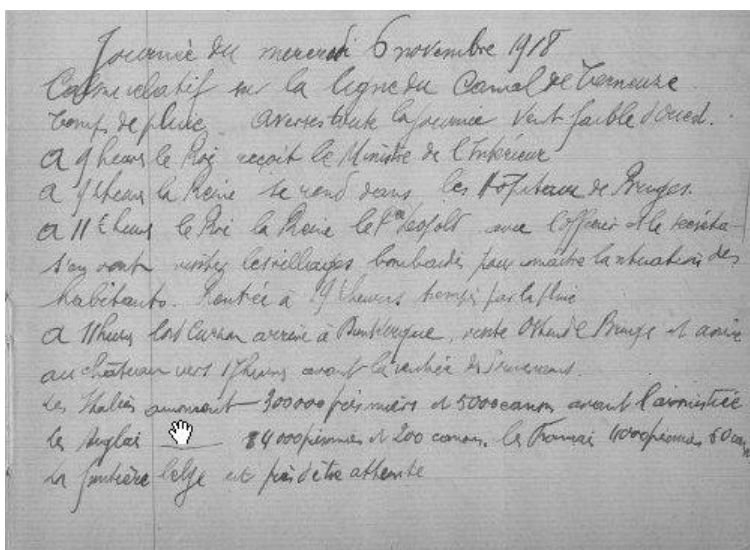 Journée du mercredi 6 novembre 1918
Calme relatif sur la ligne du Canal de Terneuze.
Temps de pluie, averses toute la journée Vent faible d'Ouest.
A 9 heures le Roi reçoit le Ministre de l'Intérieur
A 9 heures la Reine se rend dans les Hôpitaux de Bruges.
A 11 heures le Roi la Reine le Léopold avec l'officier et le
s'en vont visiter les villages bombardés pour la situation des
habitants. Rentrée à 19 heures trempés par la pluie
A 11 heures lord Curzon arrive à Dunkerque, visite Ostende Bruges et arrive
au château vers 17 heures avant la rentrée des Souverains.
Les Italiens 300000 prisonniers et 5000 canons avant l'armistice
les Anglais 14000 prisonniers et 200 canons. les Français 4000 prisonniers 60
La frontière belge est près d'être atteinte